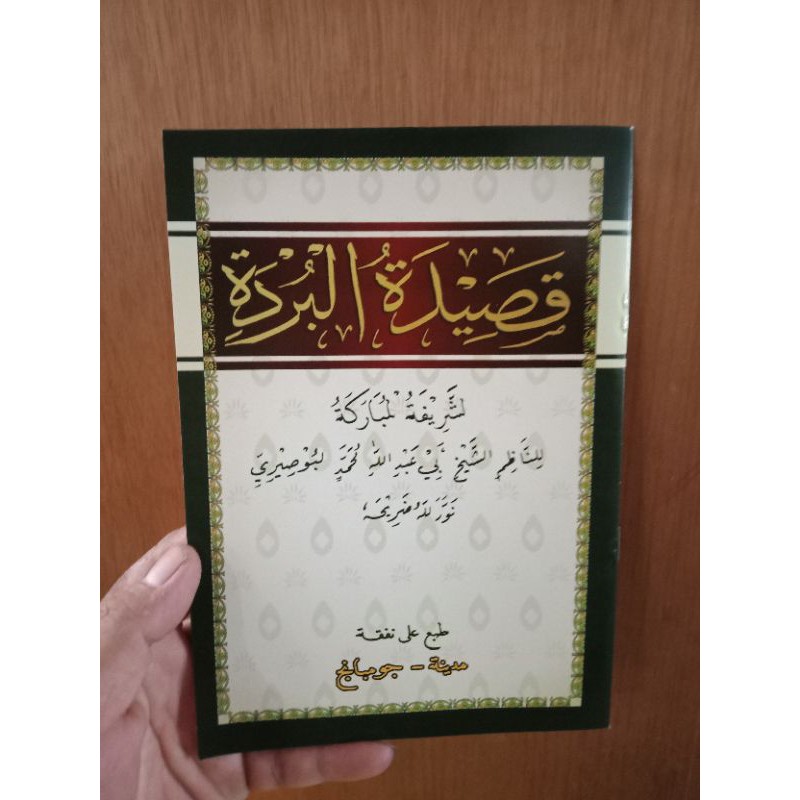 قَصِيْدَةُ الْبُرْدَةِ
لشَّرِيْفَةُ لْمُبَارَكَةُ
لِلنَّاظِمِ الشَّيْخِ بِيْ عَبْدِ اللهِ مُحَمَّدٍ لبُوْصِيْرِيِّ
نَوَّرَ للهُ ضَرِيْحَهُ
طبع على نفقة
مدينة - جومباڠ